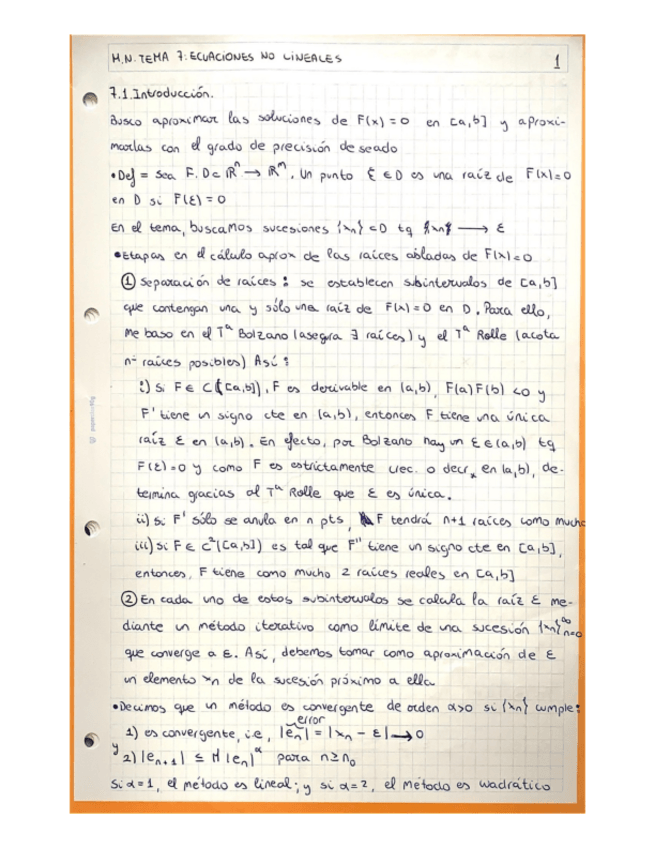 M.N. TEMA 7: ECUACIONES NO LINEALES 1
7.1. Introducción.
Busco aproximar las soluciones de F(x)=0 en [a,b] y aproxi-
marlas con el grado de precisión de seado
•Def = Sea F: D⊂ℝⁿ → ℝᵐ. Un punto ξ∈D es una raíz de F(x)=0
en D si F(ξ)=0
En el tema, buscamos sucesiones {xn}⊂D tq {xn} → ξ
•Etapas en el cálculo aprox de las raíces aisladas de F(x)=0
① Separación de raíces: se establecen subintervalos de [a,b]
que contengan una y sólo una raíz de F(x)=0 en D. Para ello,
me baso en el Tª Bolzano (asegra ∃ raíces) y el Tª Rolle (acota
nº raíces posibles) Así:
i) Si F∈C([a,b]), F es derivable en (a,b), F(a)F(b)<0 y
F' tiene un signo cte en (a,b), entonces F tiene una única
raíz ξ en (a,b). En efecto, por Bolzano hay un ξ∈(a,b) tq
F(ξ)=0 y como F es estrictamente crec. o decr. en (a,b), de-
termina gracias al Tª Rolle que ξ es única.
ii) Si F' sólo se anula en n pts, F tendrá n+1 raíces como mucho
iii) Si F∈C²([a,b]) es tal que F'' tiene un signo cte en [a,b],
entonces, F tiene como mucho 2 raíces reales en [a,b]
② En cada uno de estos subintervalos se calcula la raíz ξ me-
diante un método iterativo como límite de una sucesión {xn}∞n=0
que converge a ξ. Así, debemos tomar como aproximación de ξ
un elemento xn de la sucesión próximo a ella
•Decimos que un método es convergente de orden α>0 si {xn} cumple:
error
1) es convergente, i.e, |en| = |xn - ξ| → 0
y
2) |en+1| ≤ M |en|^α para n≥n0
Si α=1, el método es lineal; y si α=2, el método es cuadrático